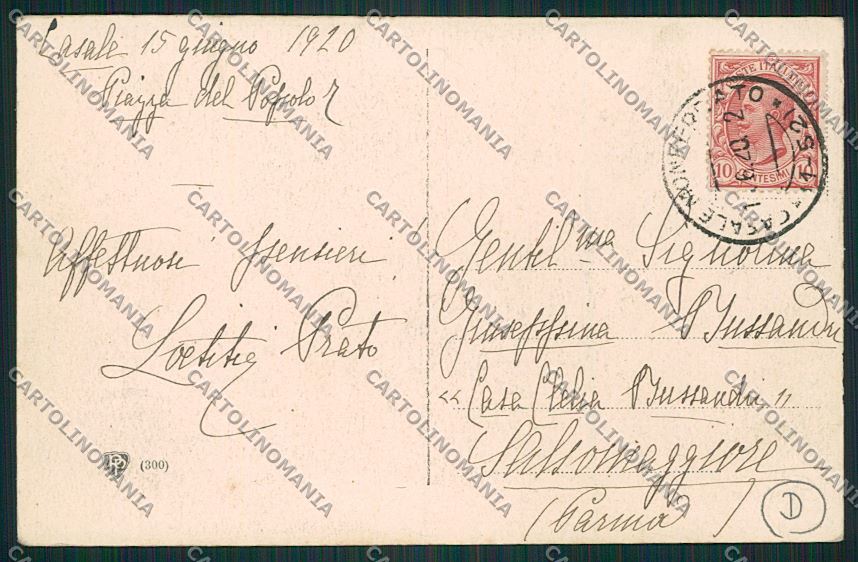 Casale 15 giugno 1920
Piazza del Popolo 7
Affettuosi pensieri!
Loetitia Prato
(300)
POSTE ITALIANE
10 CENTESIMI 10
CASALE MONFERRATO
Gentil.ma Signorina
Giuseppina Bussandri
"Casa Clelia Bussandri"
Salsomaggiore
(Parma)
D
CARTOLINOMANIA